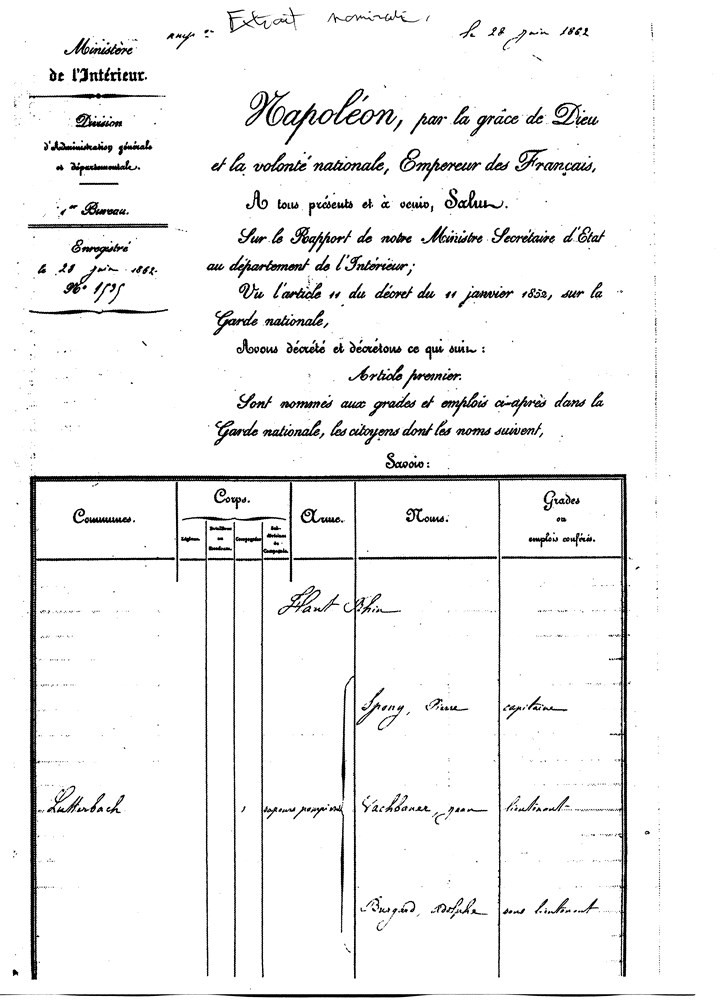 Extrait nominatif
le 28 juin 1862
Ministère
de l'Intérieur.
Division
d'Administration générale
et départementale.
1er Bureau.
Enregistré
le 28 juin 1862.
No 1535
Napoléon, par la grâce de Dieu
et la volonté nationale, Empereur des Français,
A tous présents et à venir, Salut.
Sur le Rapport de notre Ministre Secrétaire d'Etat
au département de l'Intérieur;
Vu l'article 11 du décret du 11 janvier 1852, sur la
Garde nationale,
Avons décrété et décrétons ce qui suit :
Article premier.
Sont nommés aux grades et emplois ci-après dans la
Garde nationale, les citoyens dont les noms suivent,
Savoir :
Communes. Corps. Arme. Noms. Grades ou emplois conférés.
Légions. Bataillons ou Escadrons. Compagnies Sub-divisions de Compagnie.
Haut Rhin
Spony, Pierre capitaine
Lutterbach 1 sapeurs pompiers Wachbauer, Jean lieutenant
Burgard, Adolphe sous lieutenant